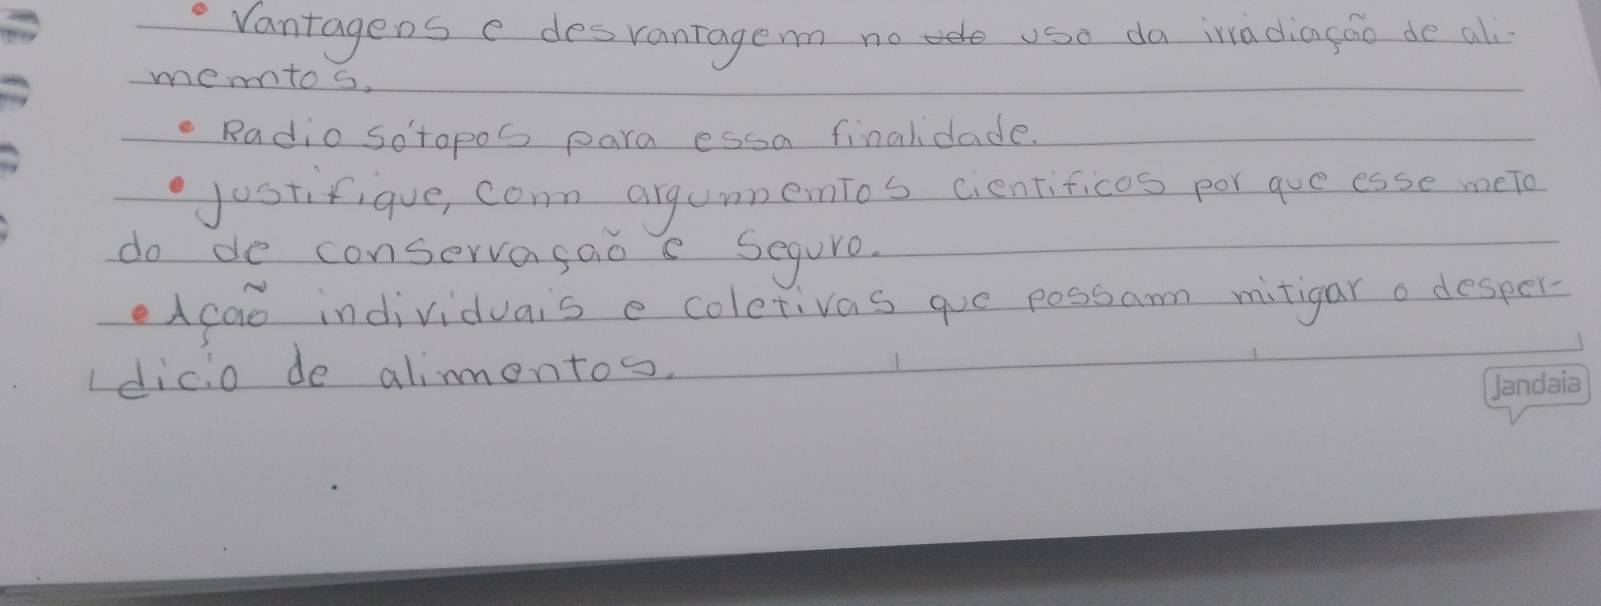 • Vantagens e desvantagem no uso da irradiação de ali-
memntos.
• Radio sótopos para essa finalidade.
• Justifique, comn argumnemtos cientificos por que esse meto
do de conservasão é seguro.
• Ação individuais e coletivas que possamn mitigar o desper-
dicio de alimnentos.
Jandaia